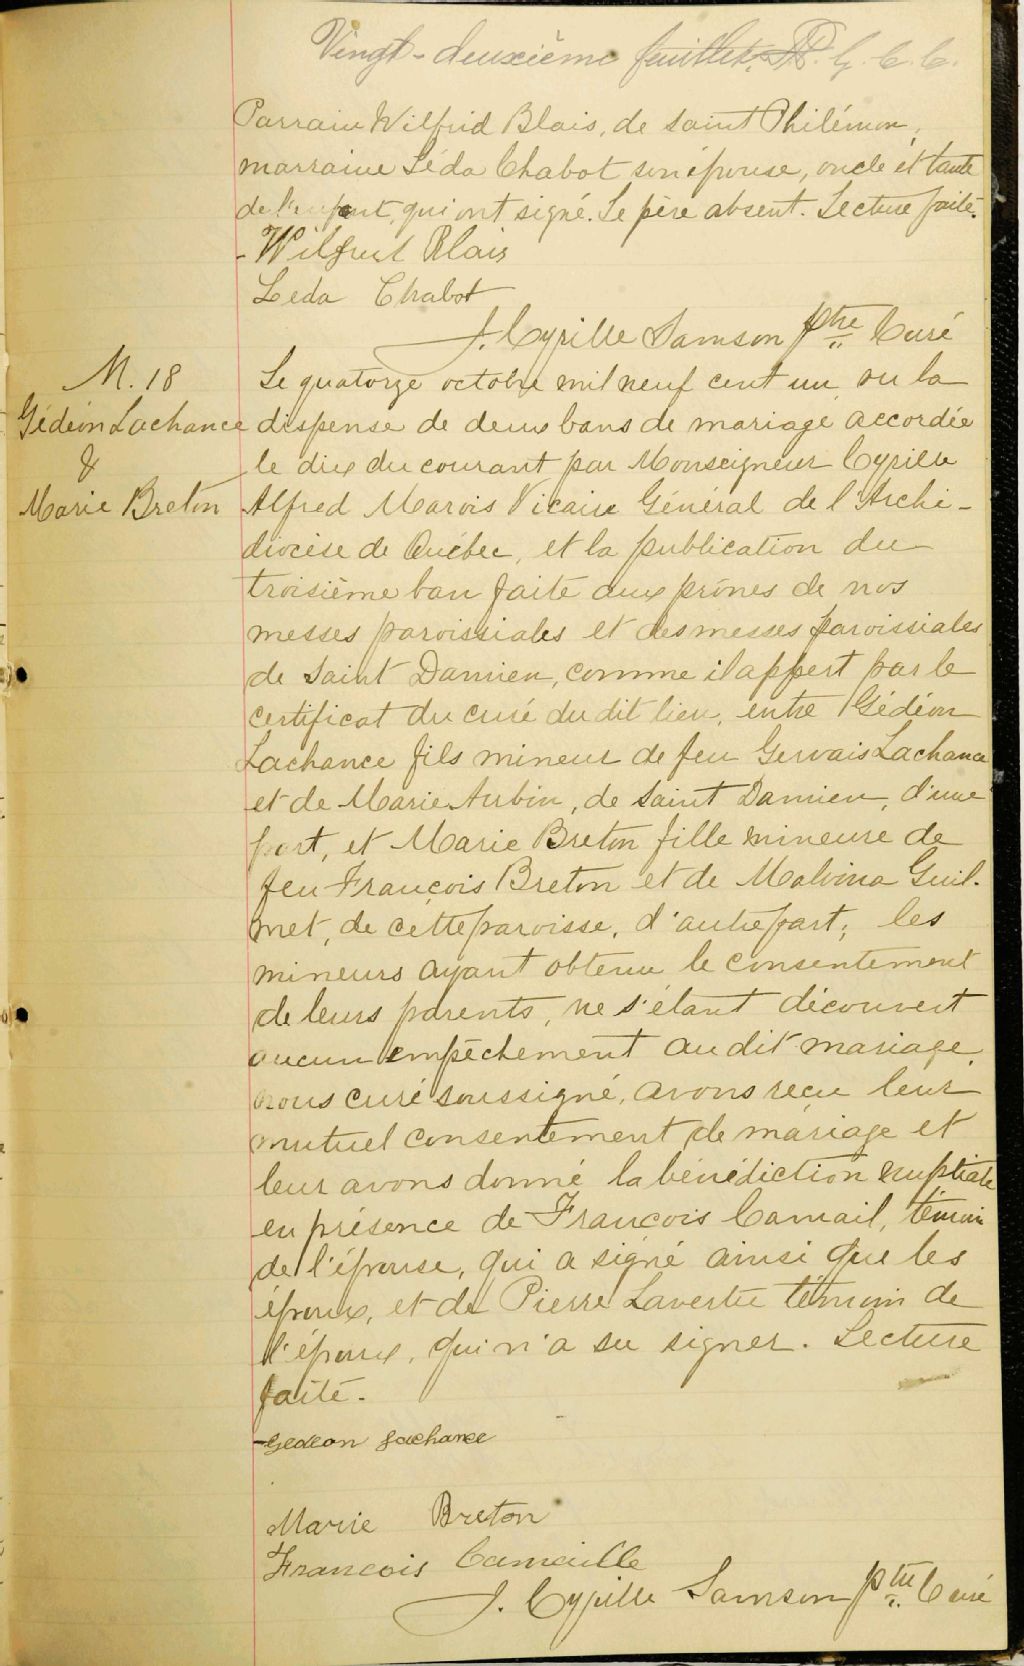 Vingt-deuxième feuillet. G. C. C.
Parrain Wilfrid Blais, de saint Philémon,
marraine Léda Chabot son épouse, oncle et tante
de l'enfant, qui ont signé. Le père absent. Lecture faite.
- Wilfrid Blais
Leda Chabot
J. Cyrille Samson Ptre Curé
M. 18
Gédéon Lachance
&
Marie Breton
Le quatorze octobre mil neuf cent un vu la
dispense de deux bans de mariage accordée
le dix du courant par Monseigneur Cyrille
Alfred Marois Vicaire Général de l'Archi-
diocèse de Québec, et la publication du
troisième ban faite aux prônes de nos
messes paroissiales et des messes paroissiales
de Saint Damien, comme il appert par le
certificat du curé du dit lieu, entre Gédéon
Lachance fils mineur de feu Gervais Lachance
et de Marie Aubin, de Saint Damien, d'une
part, et Marie Breton fille mineure de
feu François Breton et de Malvina Guil-
met, de cette paroisse, d'autre part; les
mineurs ayant obtenu le consentement
de leurs parents, ne s'étant découvert
aucun empêchement au dit mariage,
nous curé soussigné, avons reçu leur
mutuel consentement de mariage et
leur avons donné la bénédiction nuptiale
en présence de François Camail, témoin
de l'épouse, qui a signé ainsi que les
époux, et de Pierre Lavertu témoin de
l'époux, qui n'a su signer. Lecture
faite.
- Gedeon Lachance
Marie Breton
Francois Camaille
J. Cyrille Samson Ptre Curé